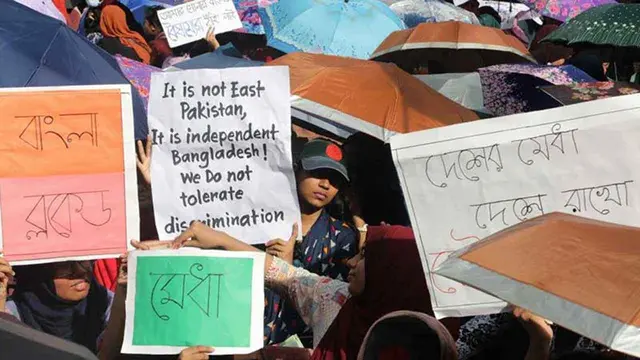 বাংলা
ব্লকেড
It is not East
Pakistan,
It is independent
Bangladesh!
We Do not
tolerate
discrimination
মেধা
দেশের মেধা
দেশে রাখো